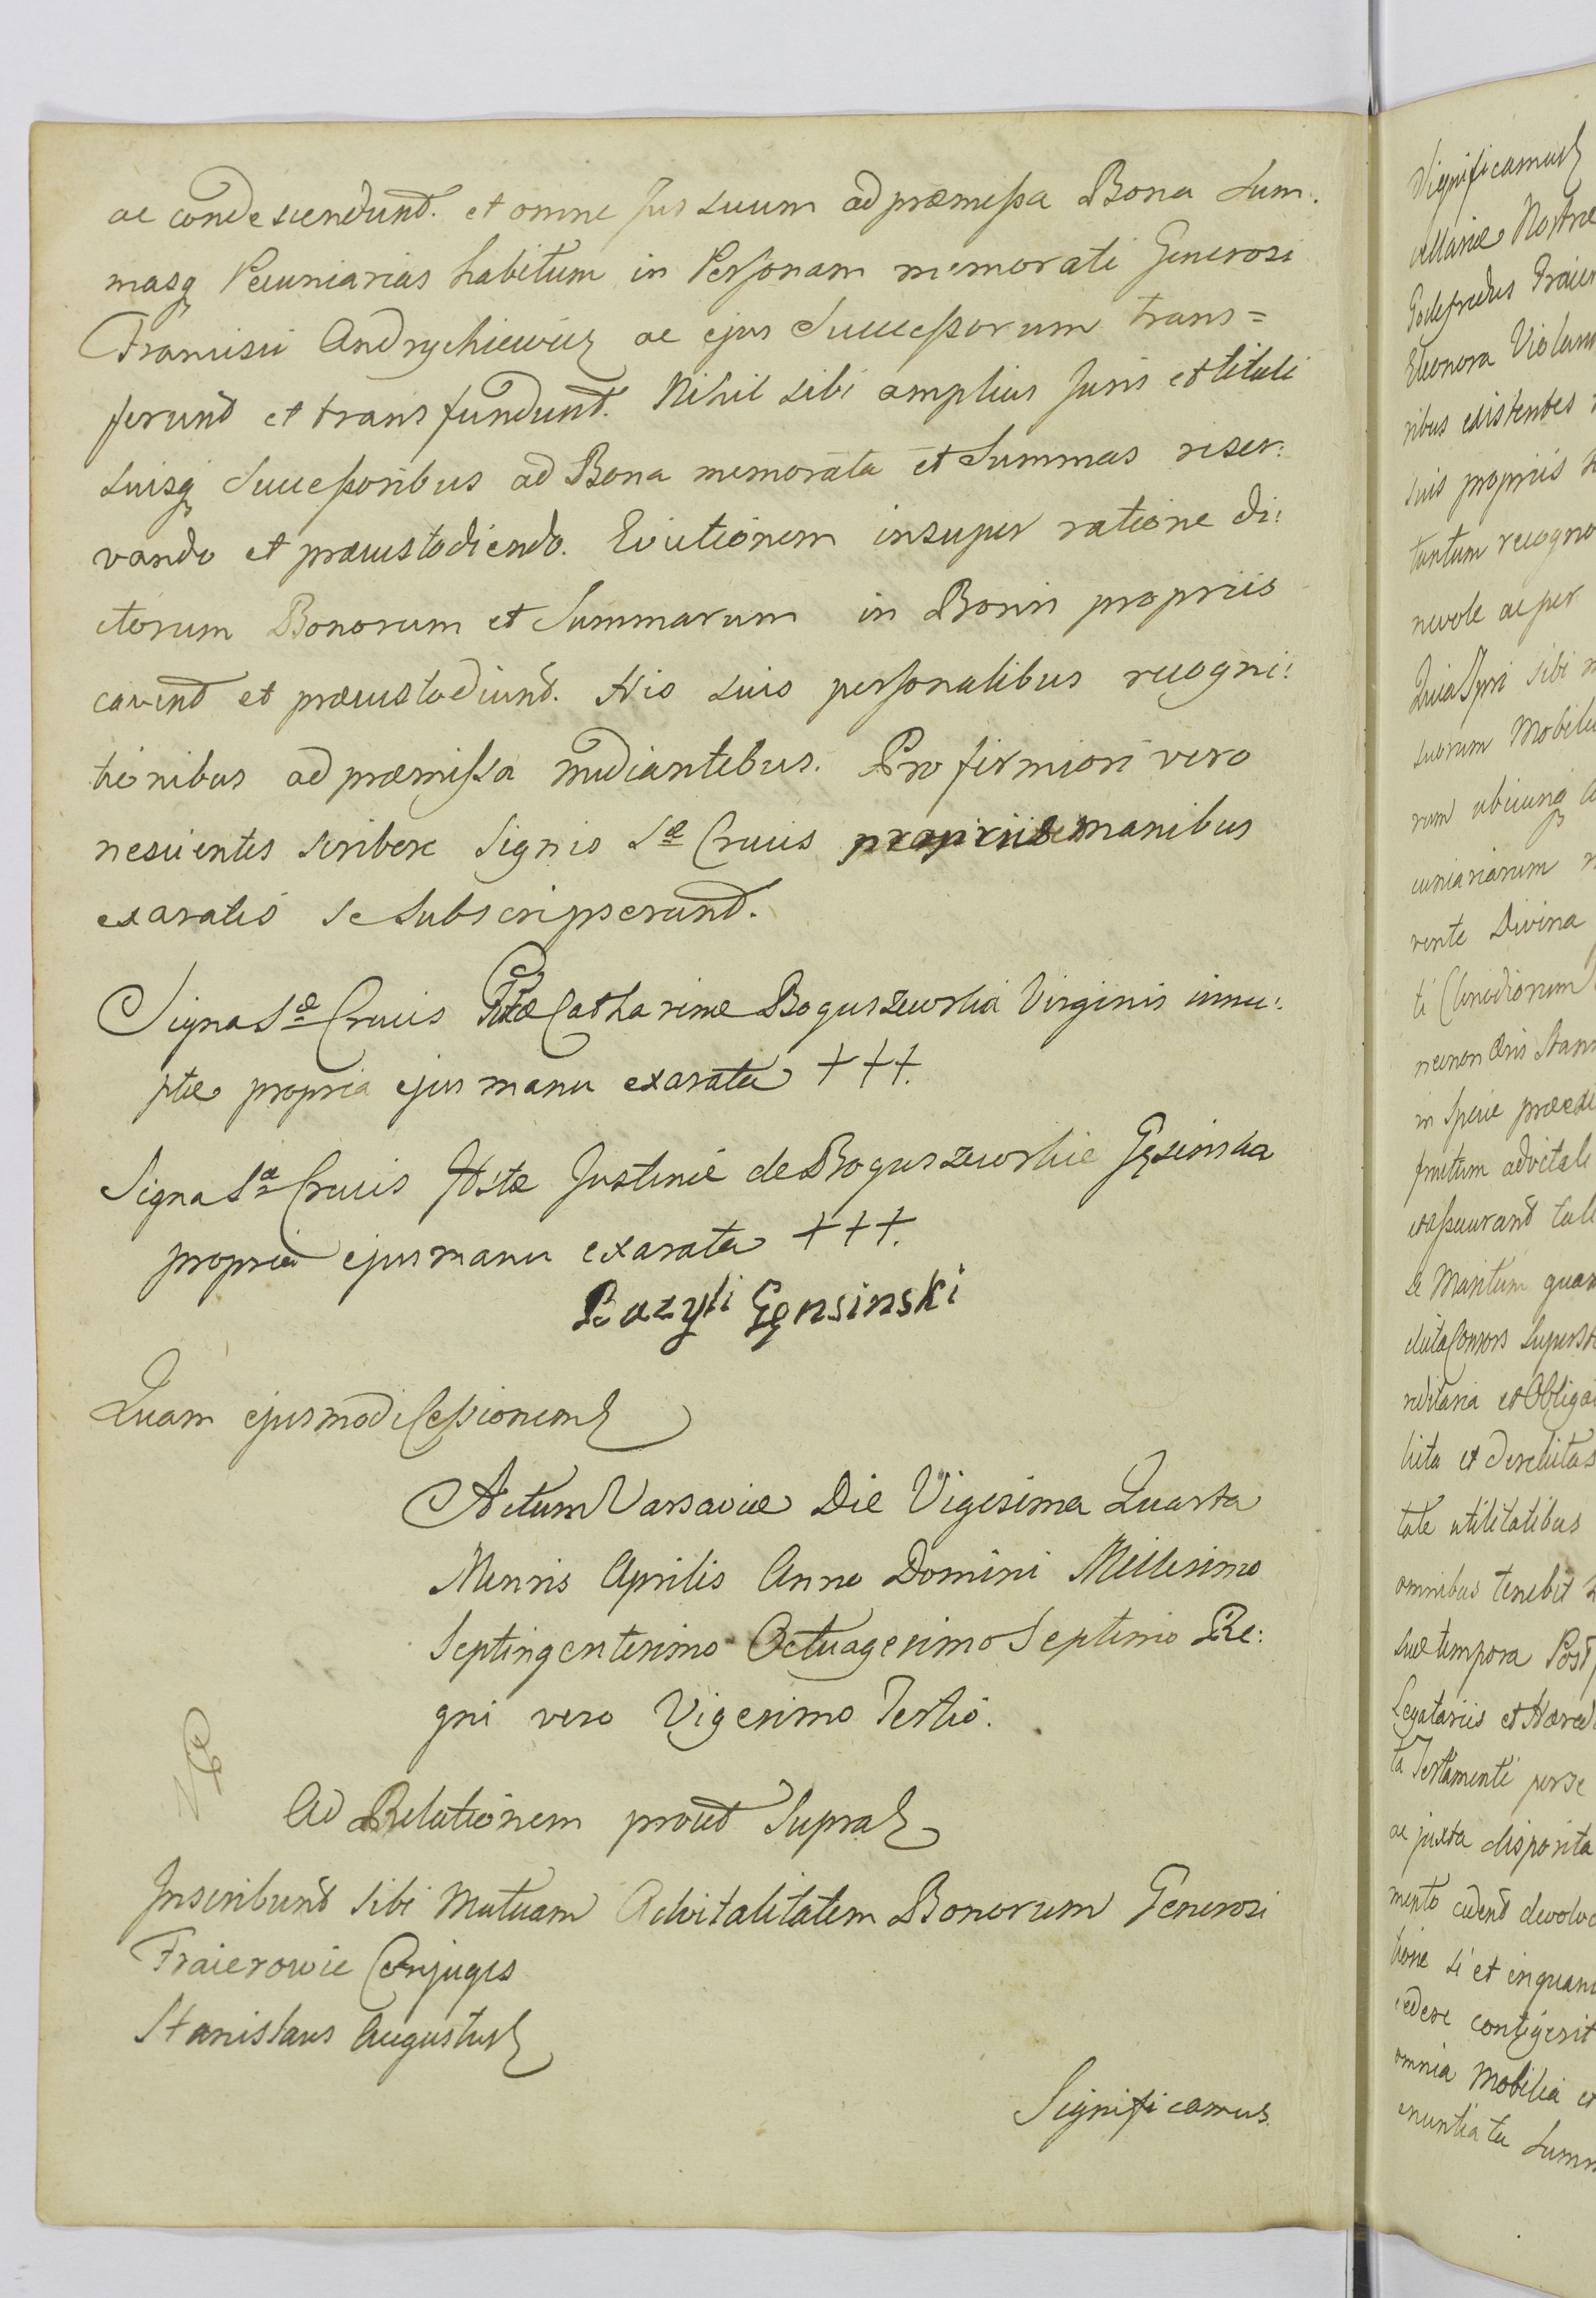 ac condescendunt. et omne Jus suum ad præmissa Bona Sum:
masq Pecuniarias habitum in Personam memorati Generosi
Francisci Andrychiewicz ac ejus Successorum trans=
ferunt et transfundunt. Nihil sibi amplius Juris et tituli
suisq Successoribus ad Bona memorata et Summas reser:
vando et præcustodiendo. Evictionem insuper ratione di:
ctorum Bonorum et Summarum in Bonis propriis
cavent et præcustodiunt. His suis personalibus recogni:
tionibus ad præmissa mediantibus. Pro firmiori vero
nescientes scribere Signis Sæ Crucis propriis manibus
exaratis se subscripserunt.
Signa Sæ Crucis Catharinæ Boguszewska Virginis innu:
ptæ propria ejus manu exarata +++.
Signa Sæ Crucis Justinæ de Boguszewskie Gęsinska
propria ejus manu exarata +++.
Bazyli Gęnsinski
Quam ejusmodi Cessionem
Actum Varsaviæ Die Vigesima Quarta
Mensis Aprilis Anno Domini Millesimo
Septingentesimo Octuagesimo Septimo Re:
gni vero Vigesimo Tertio.
Ad Relationem prout Supra
Inscribunt sibi Mutuam Advitalitatem Bonorum Generosi
Fraierowie Conjuges
Stanislaus Augustus
Significamus
Significamus
cellariæ Nostræ
Godefredus Fraier
Eleonora
ribus existentes
suis propriis
tantum recogno
nevole ac per
Quia Ipsi sibi
suorum Mobiliu
rum ubicunq
cuniariarum
rente Divina
ti Clenodiorum
necnon Æris Stan
in specie præde
fructum advitali
et assecurant tali
se Maritum quam
dicta Consors Superst
reditaria et Obliga
licta et derelictas
tate utilitatibus
omnibus tenebit
suæ tempora Post
Legatariis et Hæred
ta Testamenti per se
ac juxta disposita
mento cedent devolv
tione si et inquan
cedere contigerit
omnia Mobilia et
enuntiata Summ